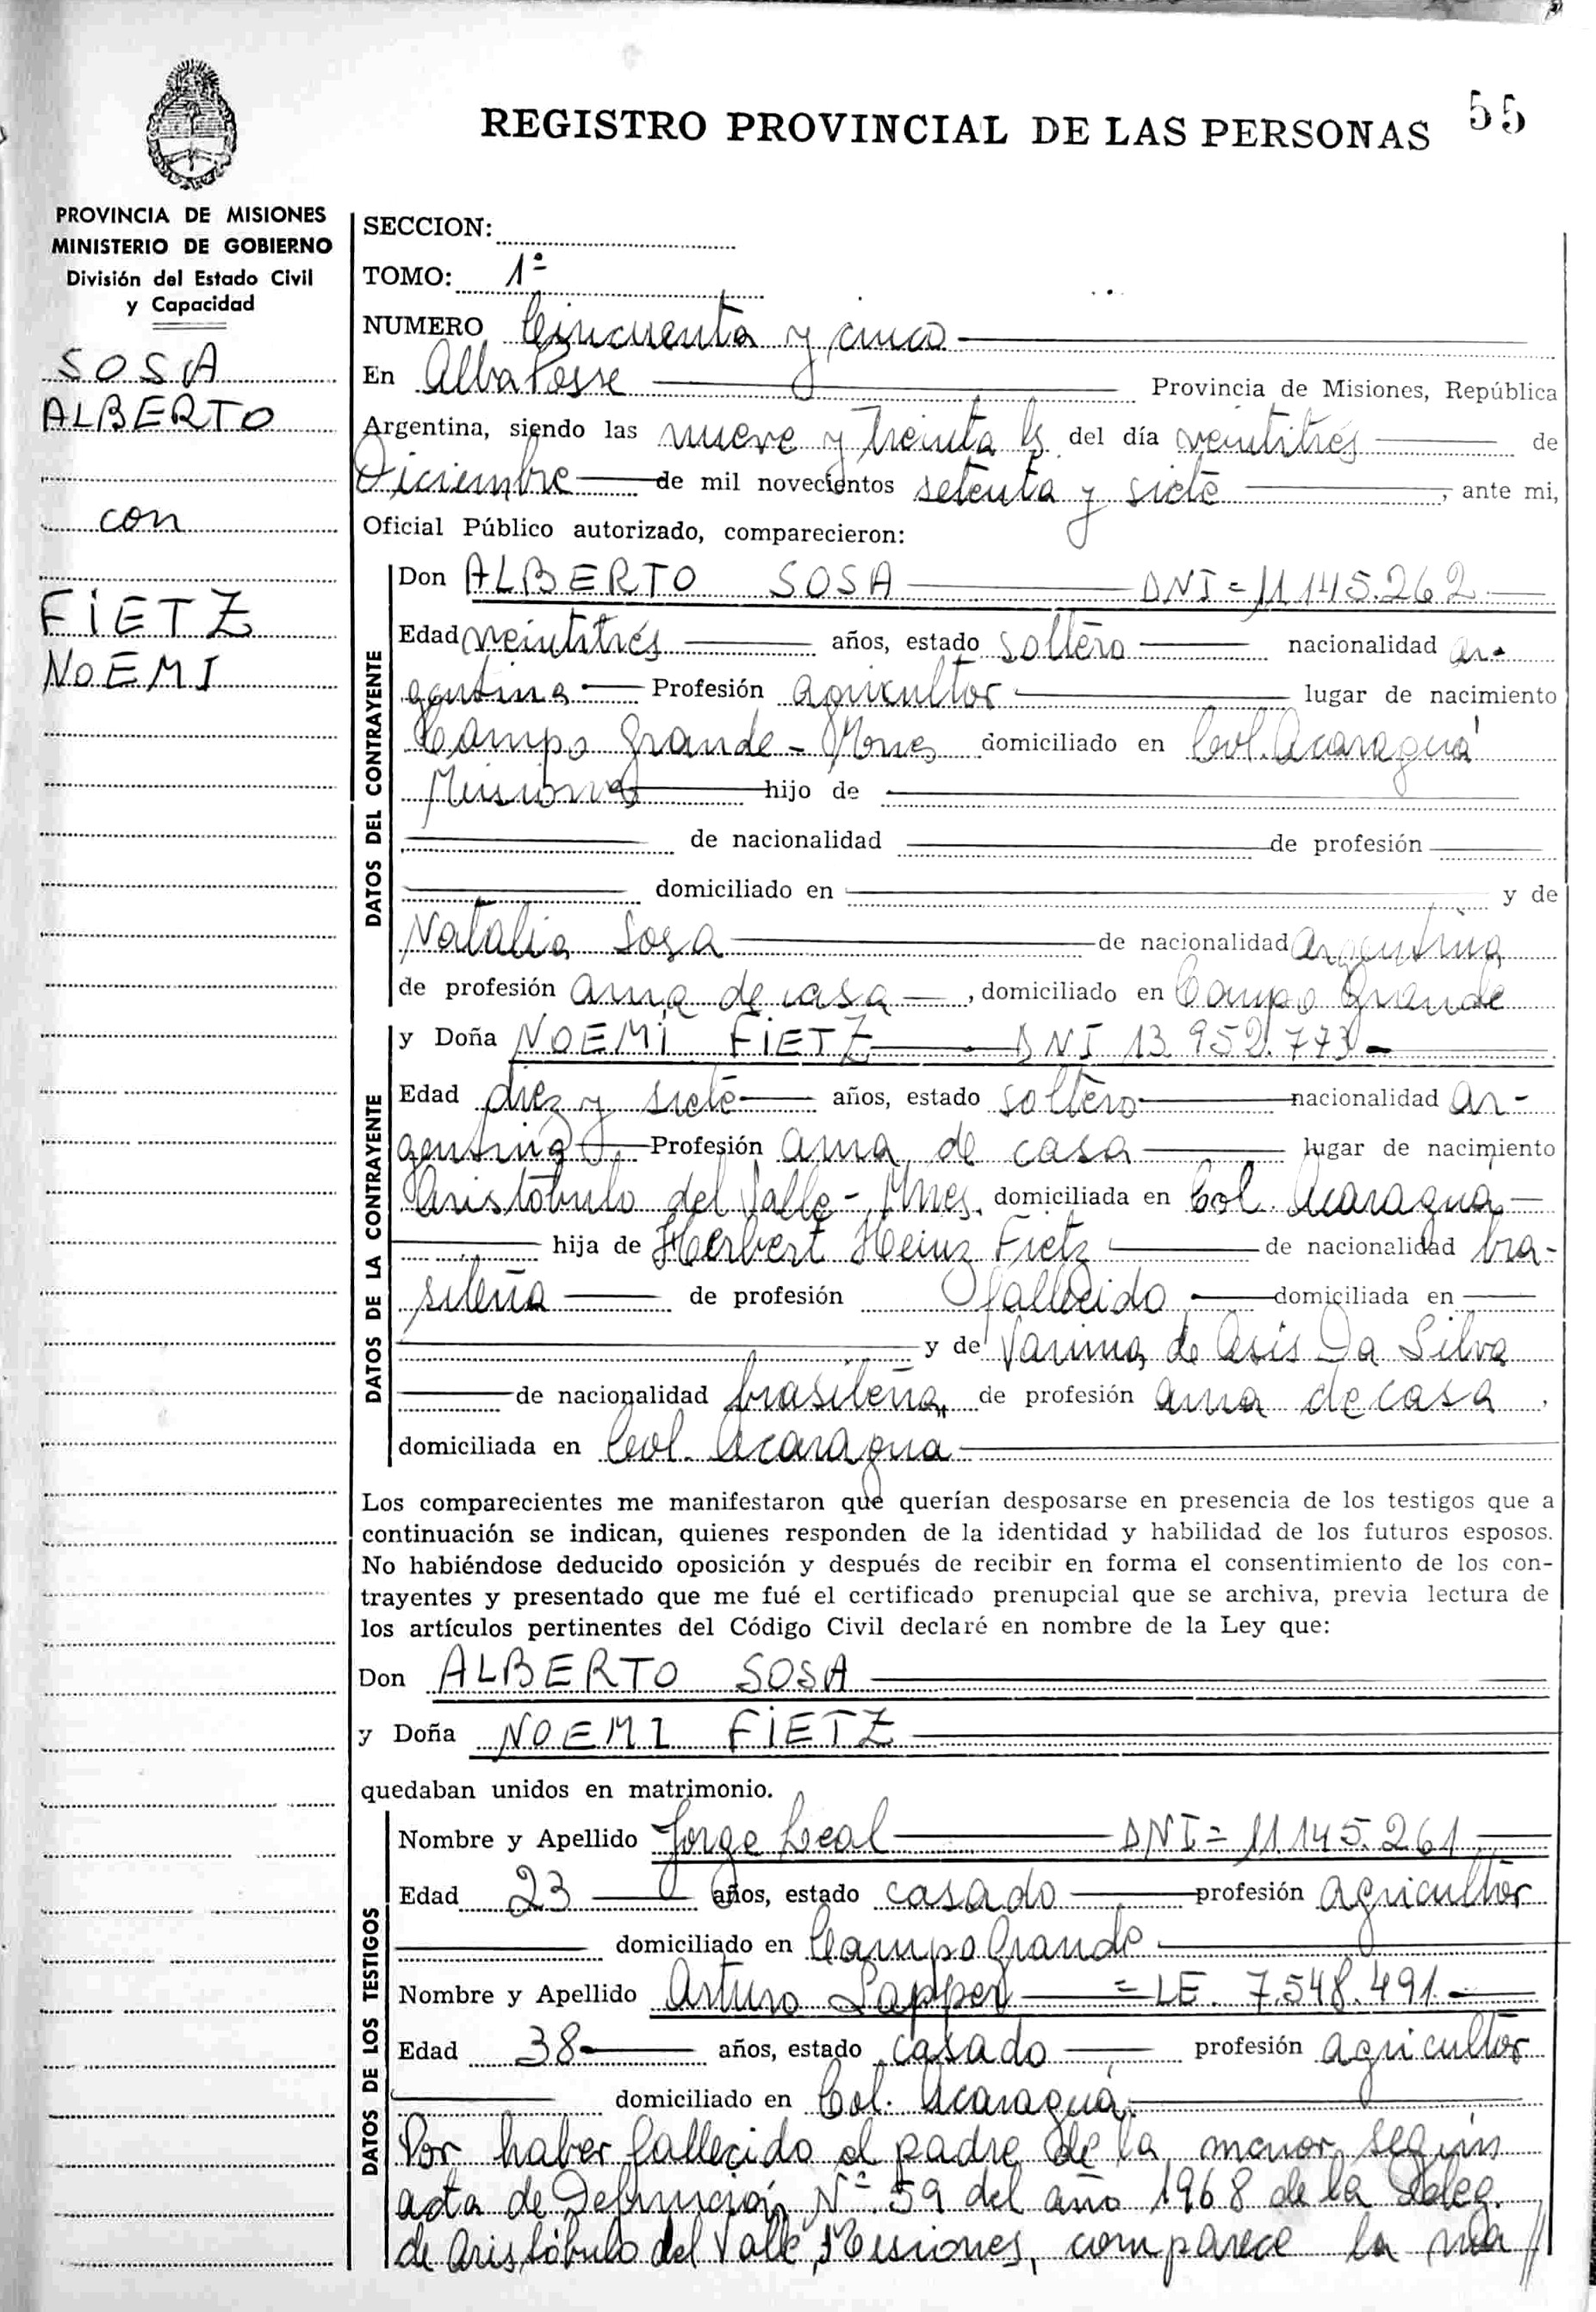 REGISTRO PROVINCIAL DE LAS PERSONAS 55
PROVINCIA DE MISIONES
MINISTERIO DE GOBIERNO
División del Estado Civil
y Capacidad
SOSA
ALBERTO
con
FIETZ
NOEMI
SECCION:
TOMO: 1º
NUMERO Cincuenta y cinco
En Alba Posse Provincia de Misiones, República
Argentina, siendo las nueve y treinta hs del día veintitrés de
Diciembre de mil novecientos setenta y siete, ante mi,
Oficial Público autorizado, comparecieron:
DATOS DEL CONTRAYENTE
Don ALBERTO SOSA DNI = 11.145.262
Edad veintitrés años, estado soltero nacionalidad ar-
gentina Profesión agricultor lugar de nacimiento
Campo Grande - Mnes domiciliado en Col. Acaraguá
Misiones hijo de
de nacionalidad de profesión
domiciliado en y de
Natalia Sosa de nacionalidad argentina
de profesión ama de casa, domiciliado en Campo Grande
DATOS DE LA CONTRAYENTE
y Doña NOEMI FIETZ DNI 13.952.773
Edad diez y siete años, estado soltero nacionalidad ar-
gentina Profesión ama de casa lugar de nacimiento
Aristóbulo del Valle - Mnes. domiciliada en Col. Acaragua
hija de Herbert Heinz Fietz de nacionalidad bra-
sileña de profesión fallecido domiciliada en
y de Vanima de Asis Da Silva
de nacionalidad brasileña, de profesión ama de casa
domiciliada en Col. Acaragua
Los comparecientes me manifestaron que querían desposarse en presencia de los testigos que a
continuación se indican, quienes responden de la identidad y habilidad de los futuros esposos.
No habiéndose deducido oposición y después de recibir en forma el consentimiento de los con-
trayentes y presentado que me fué el certificado prenupcial que se archiva, previa lectura de
los artículos pertinentes del Código Civil declaré en nombre de la Ley que:
Don ALBERTO SOSA
y Doña NOEMI FIETZ
quedaban unidos en matrimonio.
DATOS DE LOS TESTIGOS
Nombre y Apellido Jorge Leal DNI = 11.145.261
Edad 23 años, estado casado profesión agricultor
domiciliado en Campo Grande
Nombre y Apellido Arturo Lapper = LE. 7.548.491
Edad 38 años, estado casado profesión agricultor
domiciliado en Col. Acaraguá.
Por haber fallecido el padre de la menor, según
acta de Defunción Nº 59 del año 1968 de la Deleg.
de Aristóbulo del Valle, Misiones, comparece la ma //